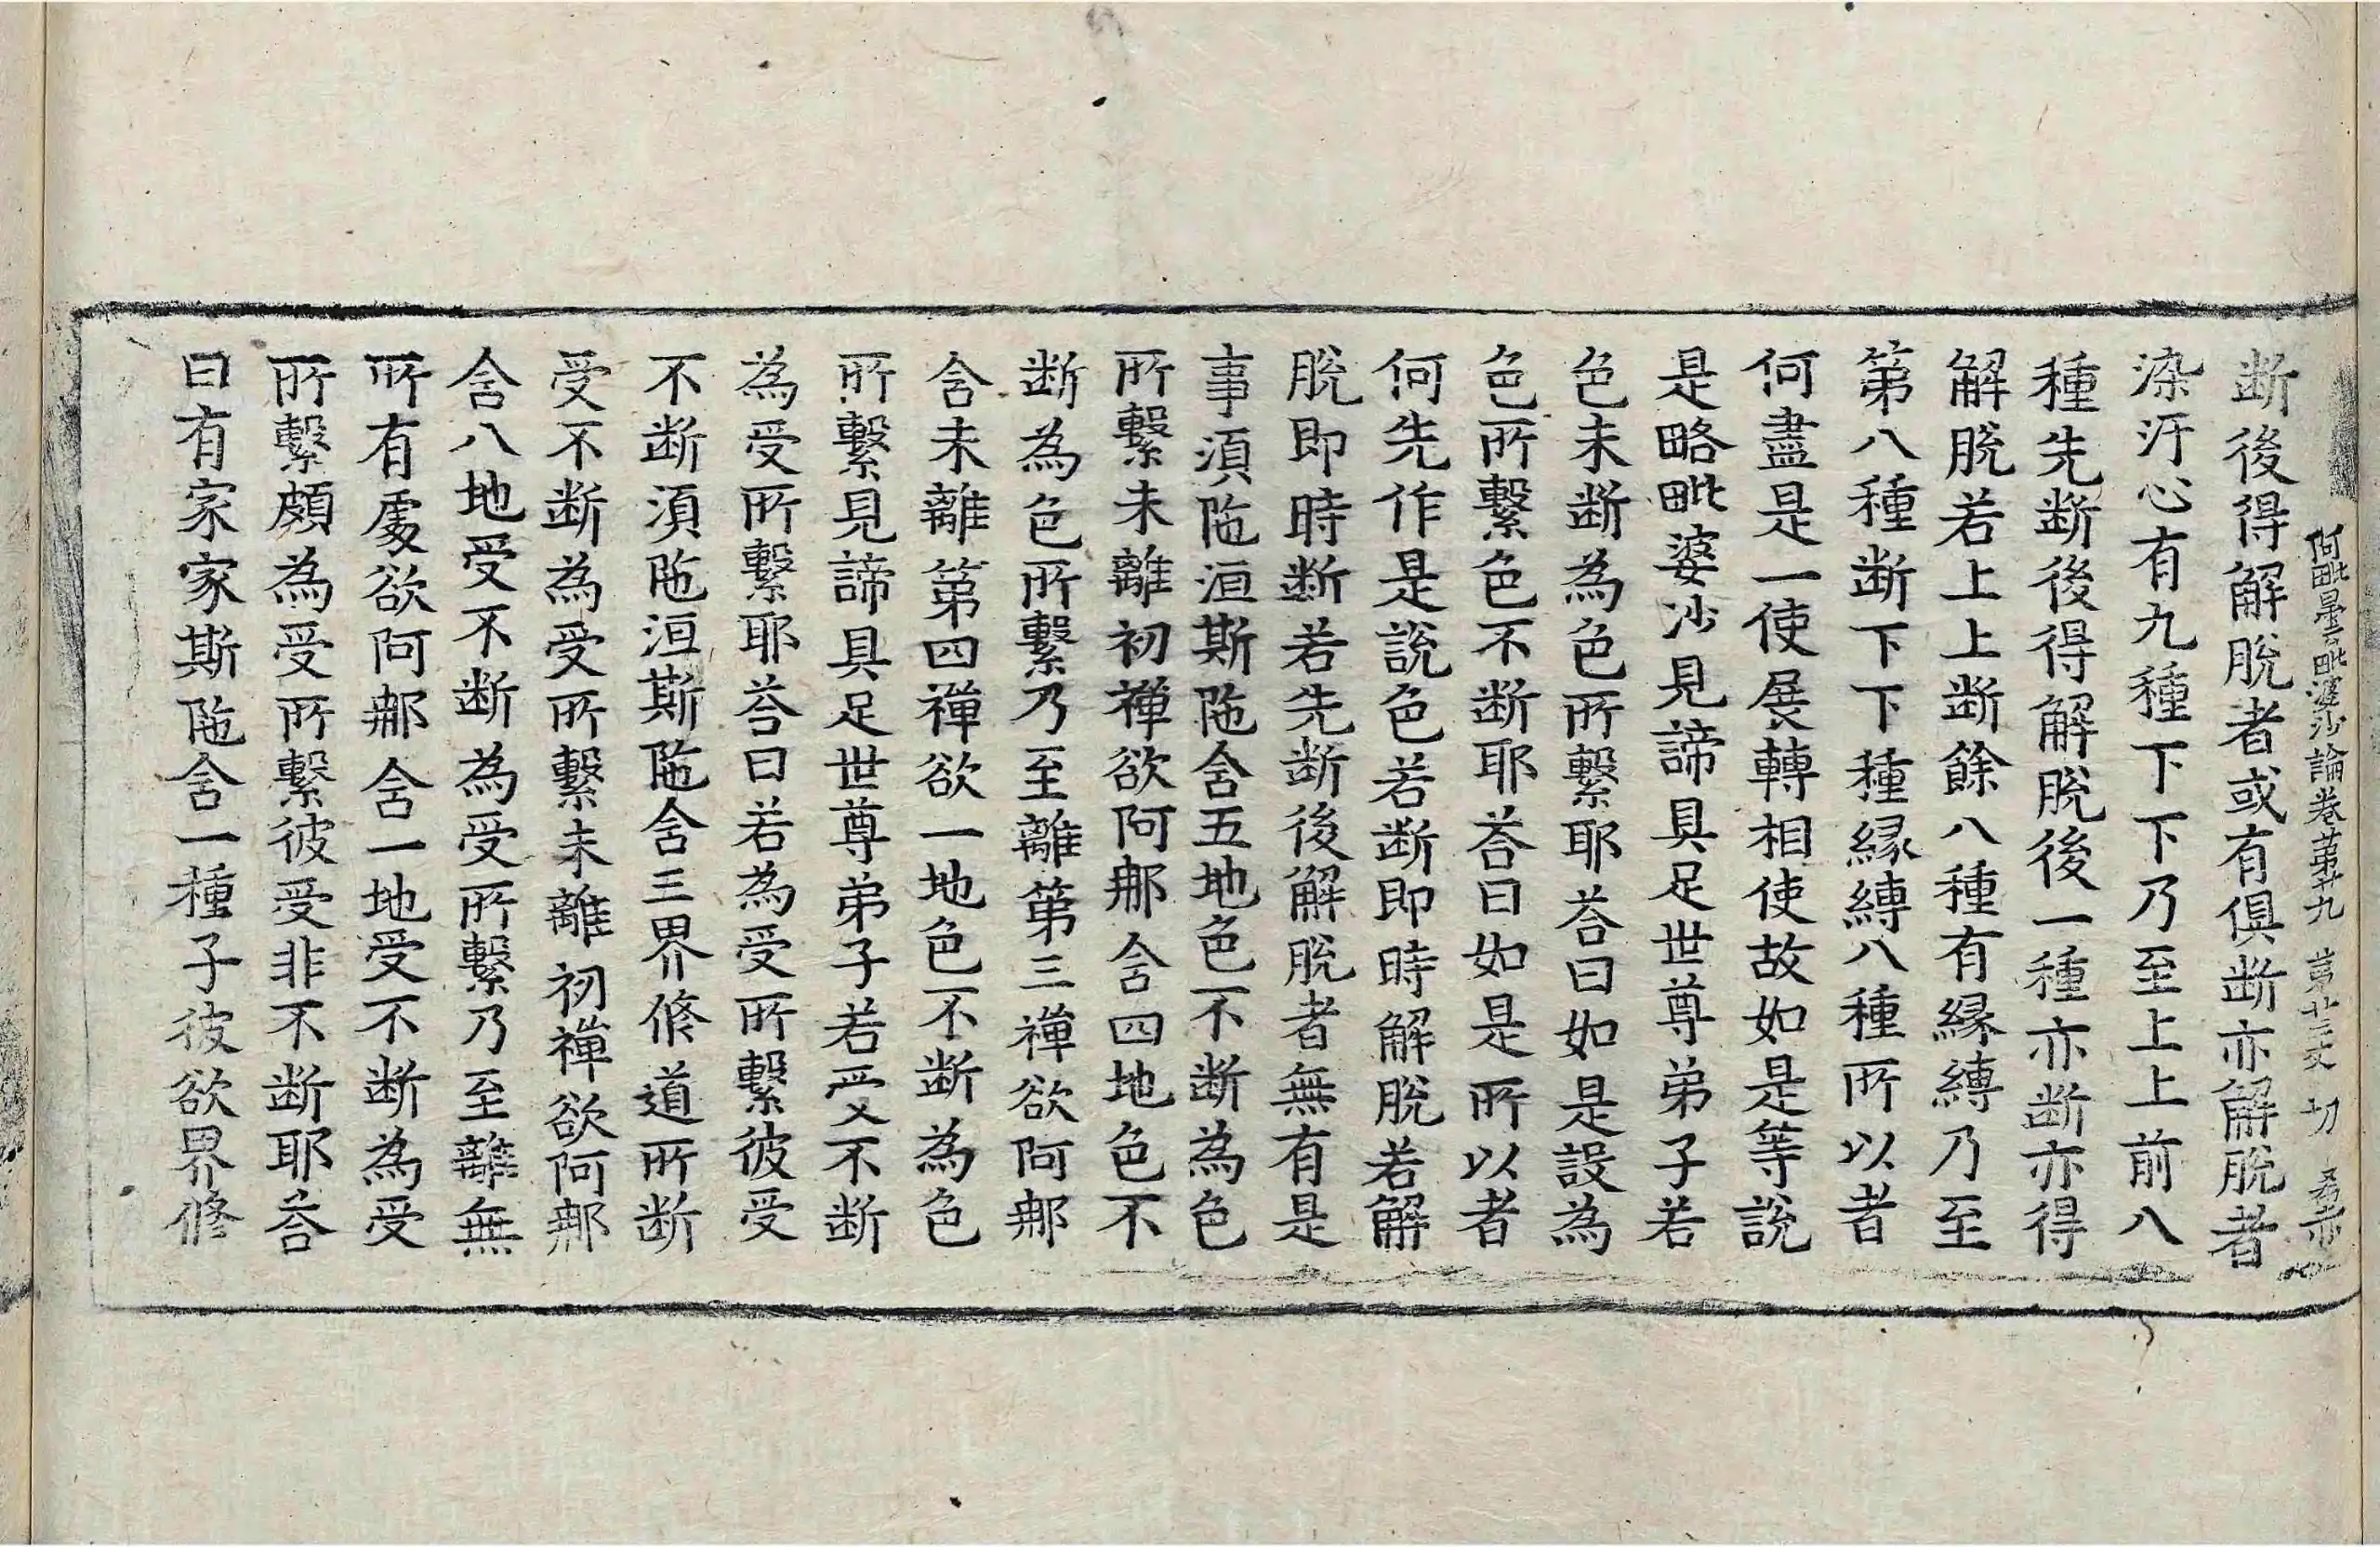 阿毗曇毗婆沙論卷第廿九 第廿三丈 切
断後得解脫者或有俱断亦解脫者
染汙心有九種下下乃至上上前八
種先断後得解脫後一種亦断亦得
解脫若上上断餘八種有縁縛乃至
第八種断下下種縁縛八種所以者
何盡是一使展轉相使故如是等說
是略毗婆沙見諦具足世尊弟子若
色未断為色所繫耶荅曰如是設為
色所繫色不断耶荅曰如是所以者
何先作是說色若断即時解脫若解
脫即時断若先断後解脫者無有是
事須陁洹斯陁含五地色不断為色
所繫未離初禪欲阿那含四地色不
断為色所繫乃至離第三禪欲阿那
含未離第四禪欲一地色不断為色
所繫見諦具足世尊弟子若受不断
為受所繫耶荅曰若為受所繫彼受
不断須陁洹斯陁含三界修道所断
受不断為受所繫未離初禪欲阿那
含八地受不断為受所繫乃至離無
所有處欲阿那含一地受不断為受
所繫頗為受所繫彼受非不断耶荅
曰有家家斯陁含一種子彼欲界修